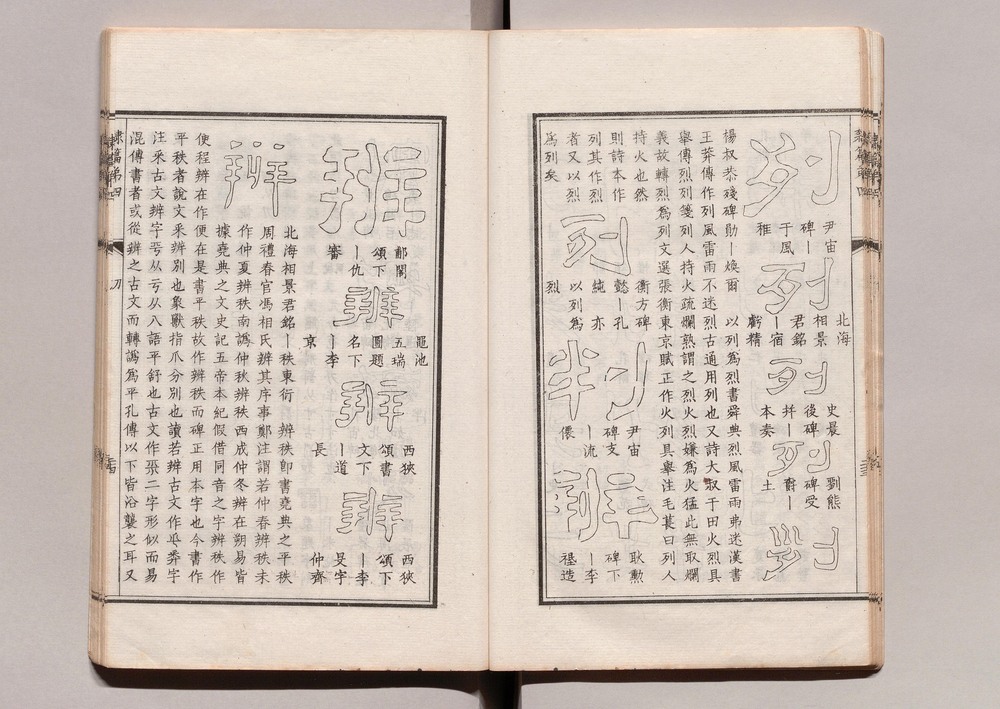 列
尹宙
碑—
于風
雅
列
北海
相景
君銘
—宿
虧精
列
史晨
後碑
并—
本奏
列
劉熊
碑受
爵—
土
列
楊叔恭殘碑勛—煥爾 以列為烈書舜典烈風雷雨弗迷漢書
王莽傳作列風雷雨不迷烈古通用列也又詩大叔于田火烈具
舉傳烈列箋列人持火疏爛熟謂之烈火烈嫌為火猛此無取爛
義故轉烈為列文選張衡東京賦正作火列具舉注毛萇曰列人
持火也然
則詩本作
列其作烈
者又以烈
為列矣
列
衡方碑
懿—孔
純 亦
以列為
烈
判
尹宙
碑支
—流
僊
辨
耿勳
碑下
—李
禔造
辨
郙閣
頌下
—仇
審
辨
黽池
五瑞
圖題
名下
—李
京
辨
西狹
頌書
文下
—道
長
辨
西狹
頌下
—李
旻字
仲齊
辨
北海相景君銘—秩東衍 辨秩即書堯典之平秩
周禮春官馮相氏辨其序事鄭注謂若仲春辨秩未
作仲夏辨秩南譌仲秋辨秩西成仲冬辨在朔易皆
據堯典之文史記五帝本紀假借同音之字辨秩作
便程辨在作便在是書平秩故作辨秩而碑正用本字也今書作
平秩者說文釆辨別也象獸指爪分別也讀若辨古文作 莽字
注釆古文辨字 从 从八語平舒也古文作 二字形似而易
混傳書者或從辨之古文而轉譌為平孔傳以下皆沿襲之耳又
隸篇第四
刀